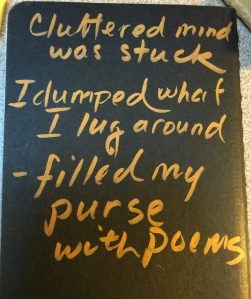 Cluttered mind
was stuck
I dumped what
I lug around
- filled my
purse
with poems